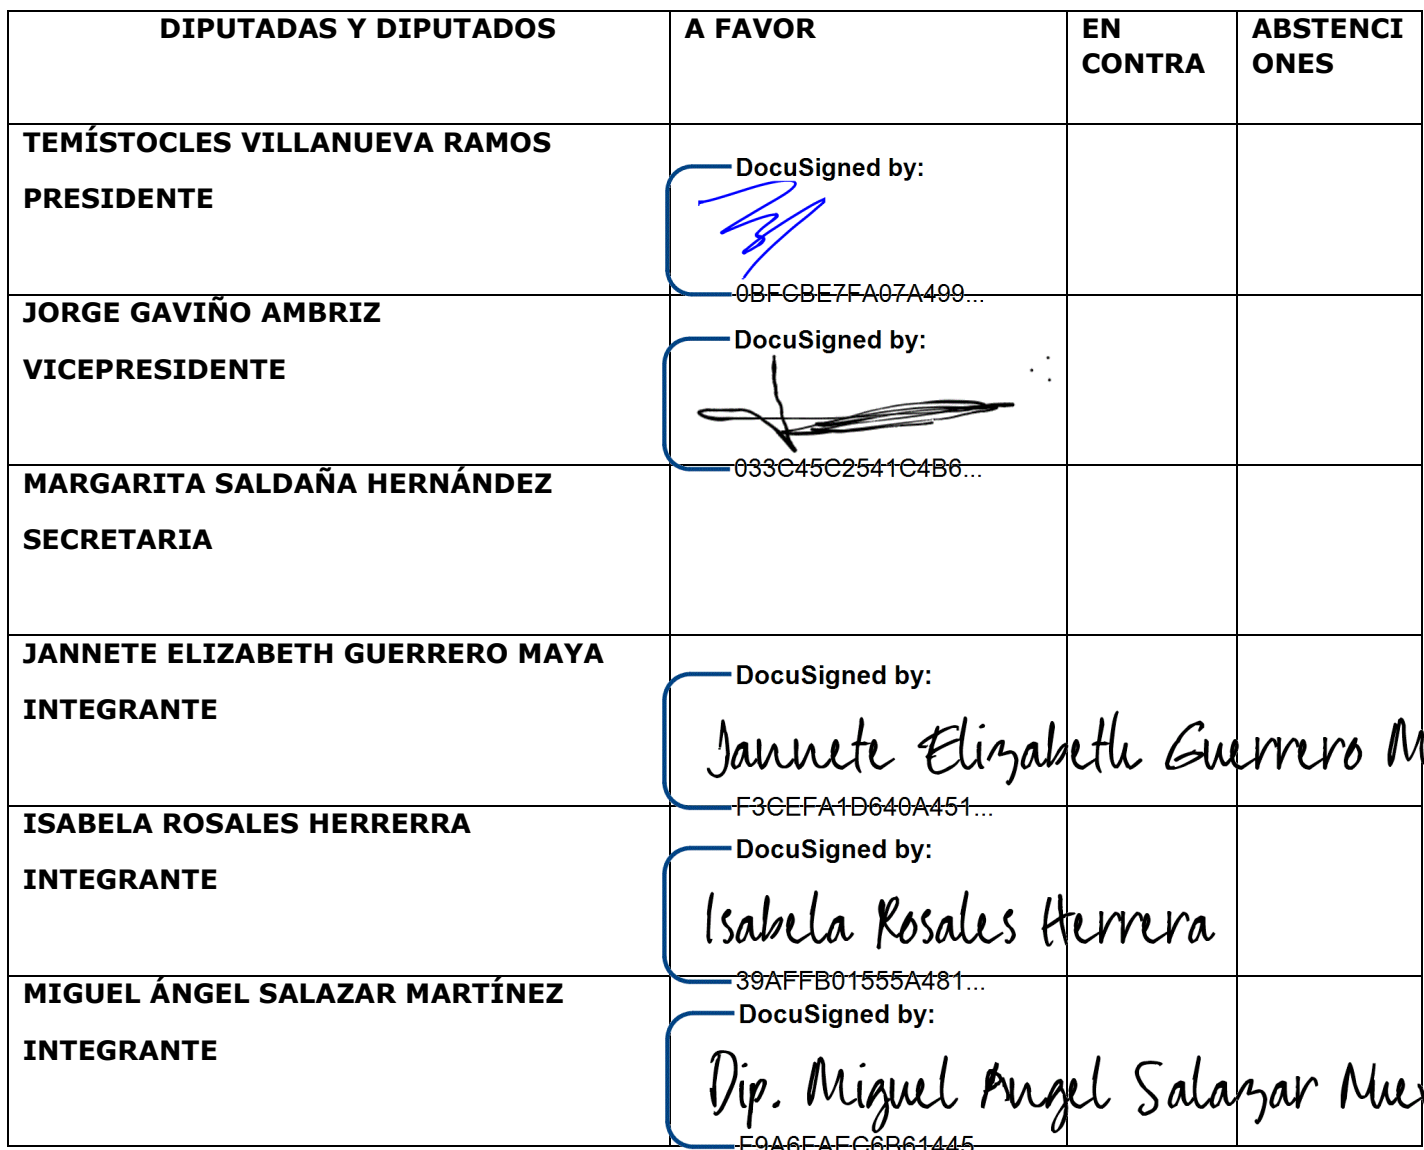 DIPUTADAS Y DIPUTADOS A FAVOR EN CONTRA ABSTENCI ONES
TEMÍSTOCLES VILLANUEVA RAMOS
PRESIDENTE
DocuSigned by:
0BFCBE7FA07A499...
JORGE GAVIÑO AMBRIZ
VICEPRESIDENTE
DocuSigned by:
033C45C2541C4B6...
MARGARITA SALDAÑA HERNÁNDEZ
SECRETARIA
JANNETE ELIZABETH GUERRERO MAYA
INTEGRANTE
DocuSigned by:
Jannete Elizabeth Guerrero M
F3CEFA1D640A451...
ISABELA ROSALES HERRERRA
INTEGRANTE
DocuSigned by:
Isabela Rosales Herrera
39AFFB01555A481...
MIGUEL ÁNGEL SALAZAR MARTÍNEZ
INTEGRANTE
DocuSigned by:
Dip. Miguel Angel Salazar